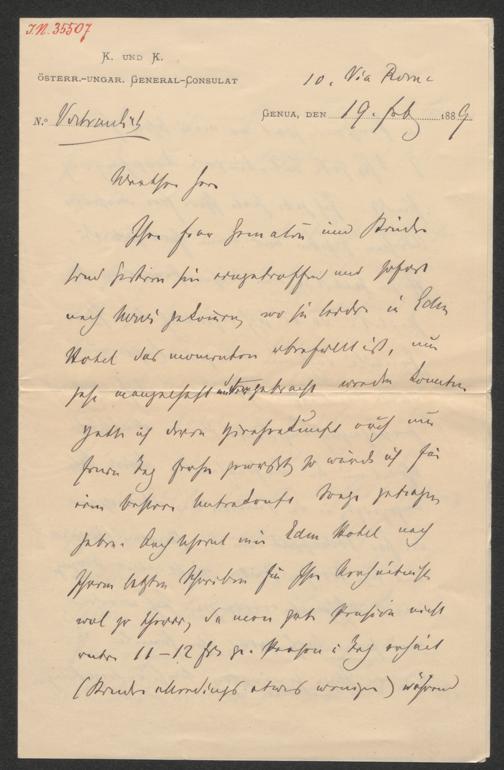 I.N. 35507
K. UND K.
ÖSTERR.-UNGAR. GENERAL-CONSULAT
10. Via Roma
GENUA, DEN 19. Feb 1889
N.º Vertraulich
Werther Herr
Ihre Frau Gemalin und Kinder
sind gestern hier eingetroffen und sofort
nach Nervi gefahren, wo sie leider in Eden
Hotel das momentan überfüllt ist, nur
sehr mangelhaft untergebracht werden konnten
Hätte ich deren Hierherkunft auch nur
einen Tag früher gewußt so würde ich für
eine bessere Unterkunft Sorge getragen
haben. Auch scheint mir Eden Hotel nach
Ihrem letzten Schreiben für Ihre Verhältnisse
wol zu theuer, da man gute Pension nicht
unter 11–12 frs pr. Person i Tag erhält
(Kinder allerdings etwas weniger) während